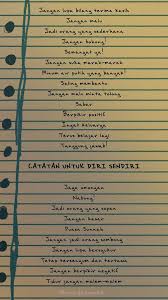 Jangan lupa bilang terima kasih
Jangan malu
Jadi orang yang sederhana
Jangan bohong!
Semangat ya!
Jangan suka marah-marah
Minum air putih yang banyak!
Saling membantu
Jangan malu minta tolong
Sabar
Berpikir positif
Ingat keluarga
Terus belajar lagi
Tanggung jawab!
CATATAN UNTUK DIRI SENDIRI
Jaga omongan
Nabung!
Jadi orang yang sopan
Jangan kasar
Puasa Sunnah
Jangan jadi orang sombong
Jangan lupa bersyukur
Tetap tersenyum dan tertawa
Jangan berpikir negatif
Tidur jangan malam-malam